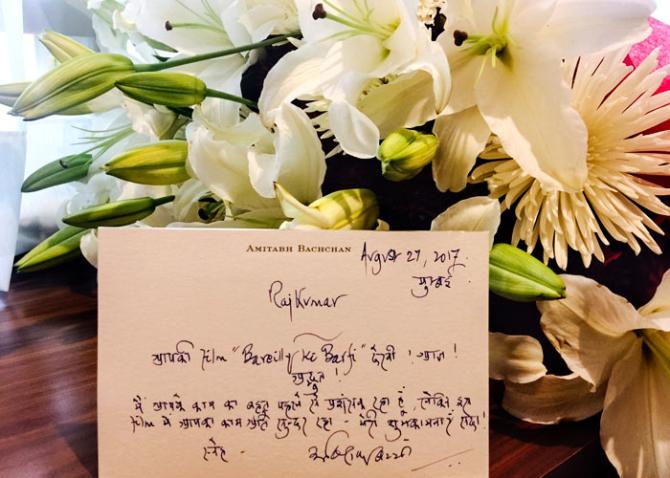 AMITABH BACHCHAN
August 27, 2017.
मुम्बई.
RajKumar
आपकी film "Bareilly Ki Barfi" देखी ! आज !
अद्भुत !
मैं आपके काम का बहुत पहले से प्रशंसक रहा हूँ, लेकिन इस
film में आपका काम अति सुन्दर रहा - मेरी शुभकामनाएँ सदा !
स्नेह -